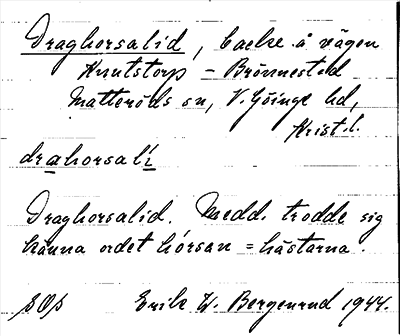 Draghorsalid, backe å vägen
Knutstorp - Brönnestad
Matteröds sn, V. Göinge hd,
Krist. l.
drahorsalí
Draghorsalid. Medd. trodde sig
känna ordet hórsan = hästarna.
sOs Erik W. Bergenrud 1944.